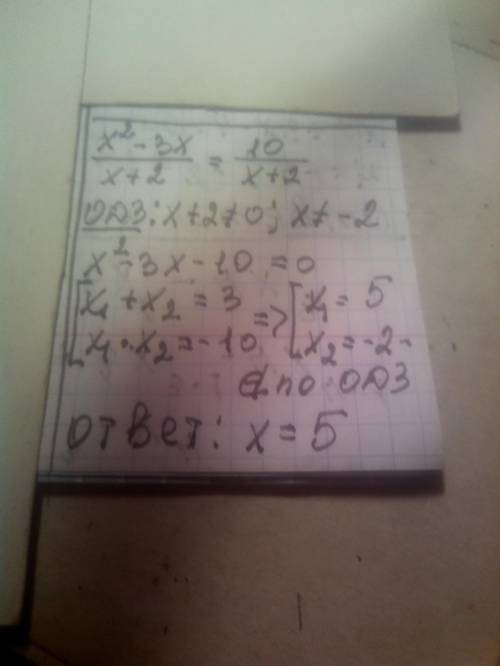 x² - 3x / x+2 = 10 / x+2
ОДЗ: x+2≠0; x≠-2
x²-3x-10=0
[x₁+x₂=3 => [x₁=5
[x₁·x₂=-10 [x₂=-2-
по ОДЗ
ответ: x=5